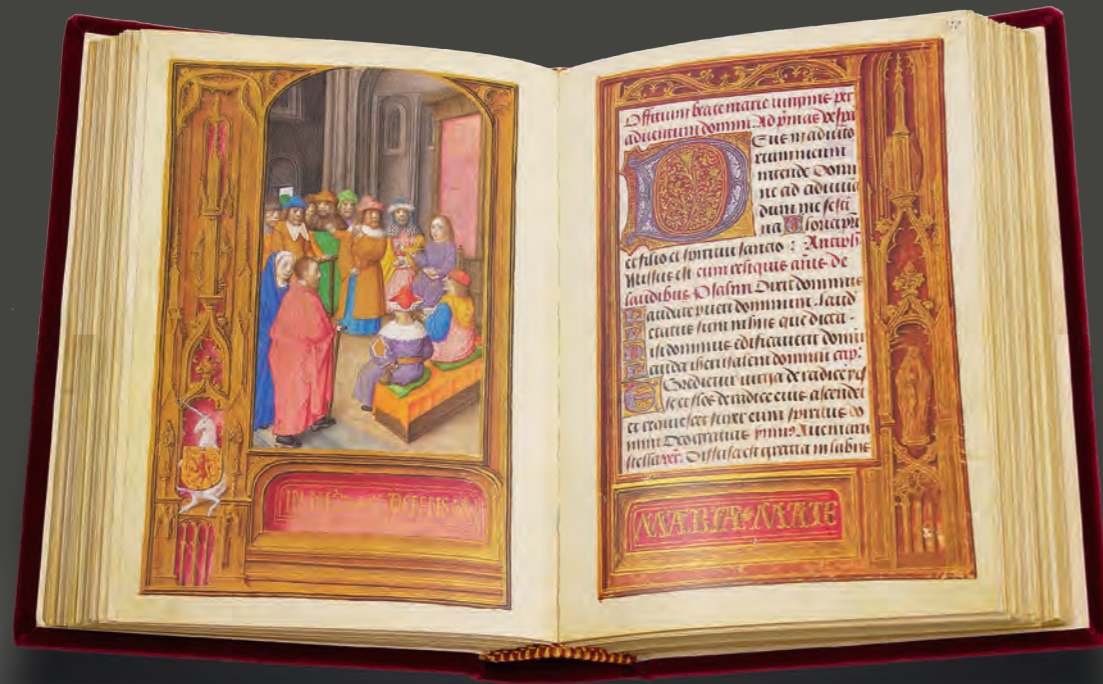 IN MY DEFENS
Officium beate marie virginis per
aduentum domini Ad primas vesp
DEus in adiuto
rium meum
intende Domi
ne ad adiuuã
dum me festi
na Gloria pri
et filio et spiritui sancto : Antiph
Missus est cum reliquis añis de
laudibus Psalm Dixit dominus
Laudate pueri dominum. Laud
Letatus sum in hiis que dicta .
Nisi dominus edificauerit domũ
Lauda iherusalem dominũ cap:
Egredietur uirga de radice yes
se et flos de radice eius ascendet
et requiescet super eum spiritus do
mini Deo gratias ymnus Aue maris
stella ver. Diffusa est gratia in labiis
MARIA MATE